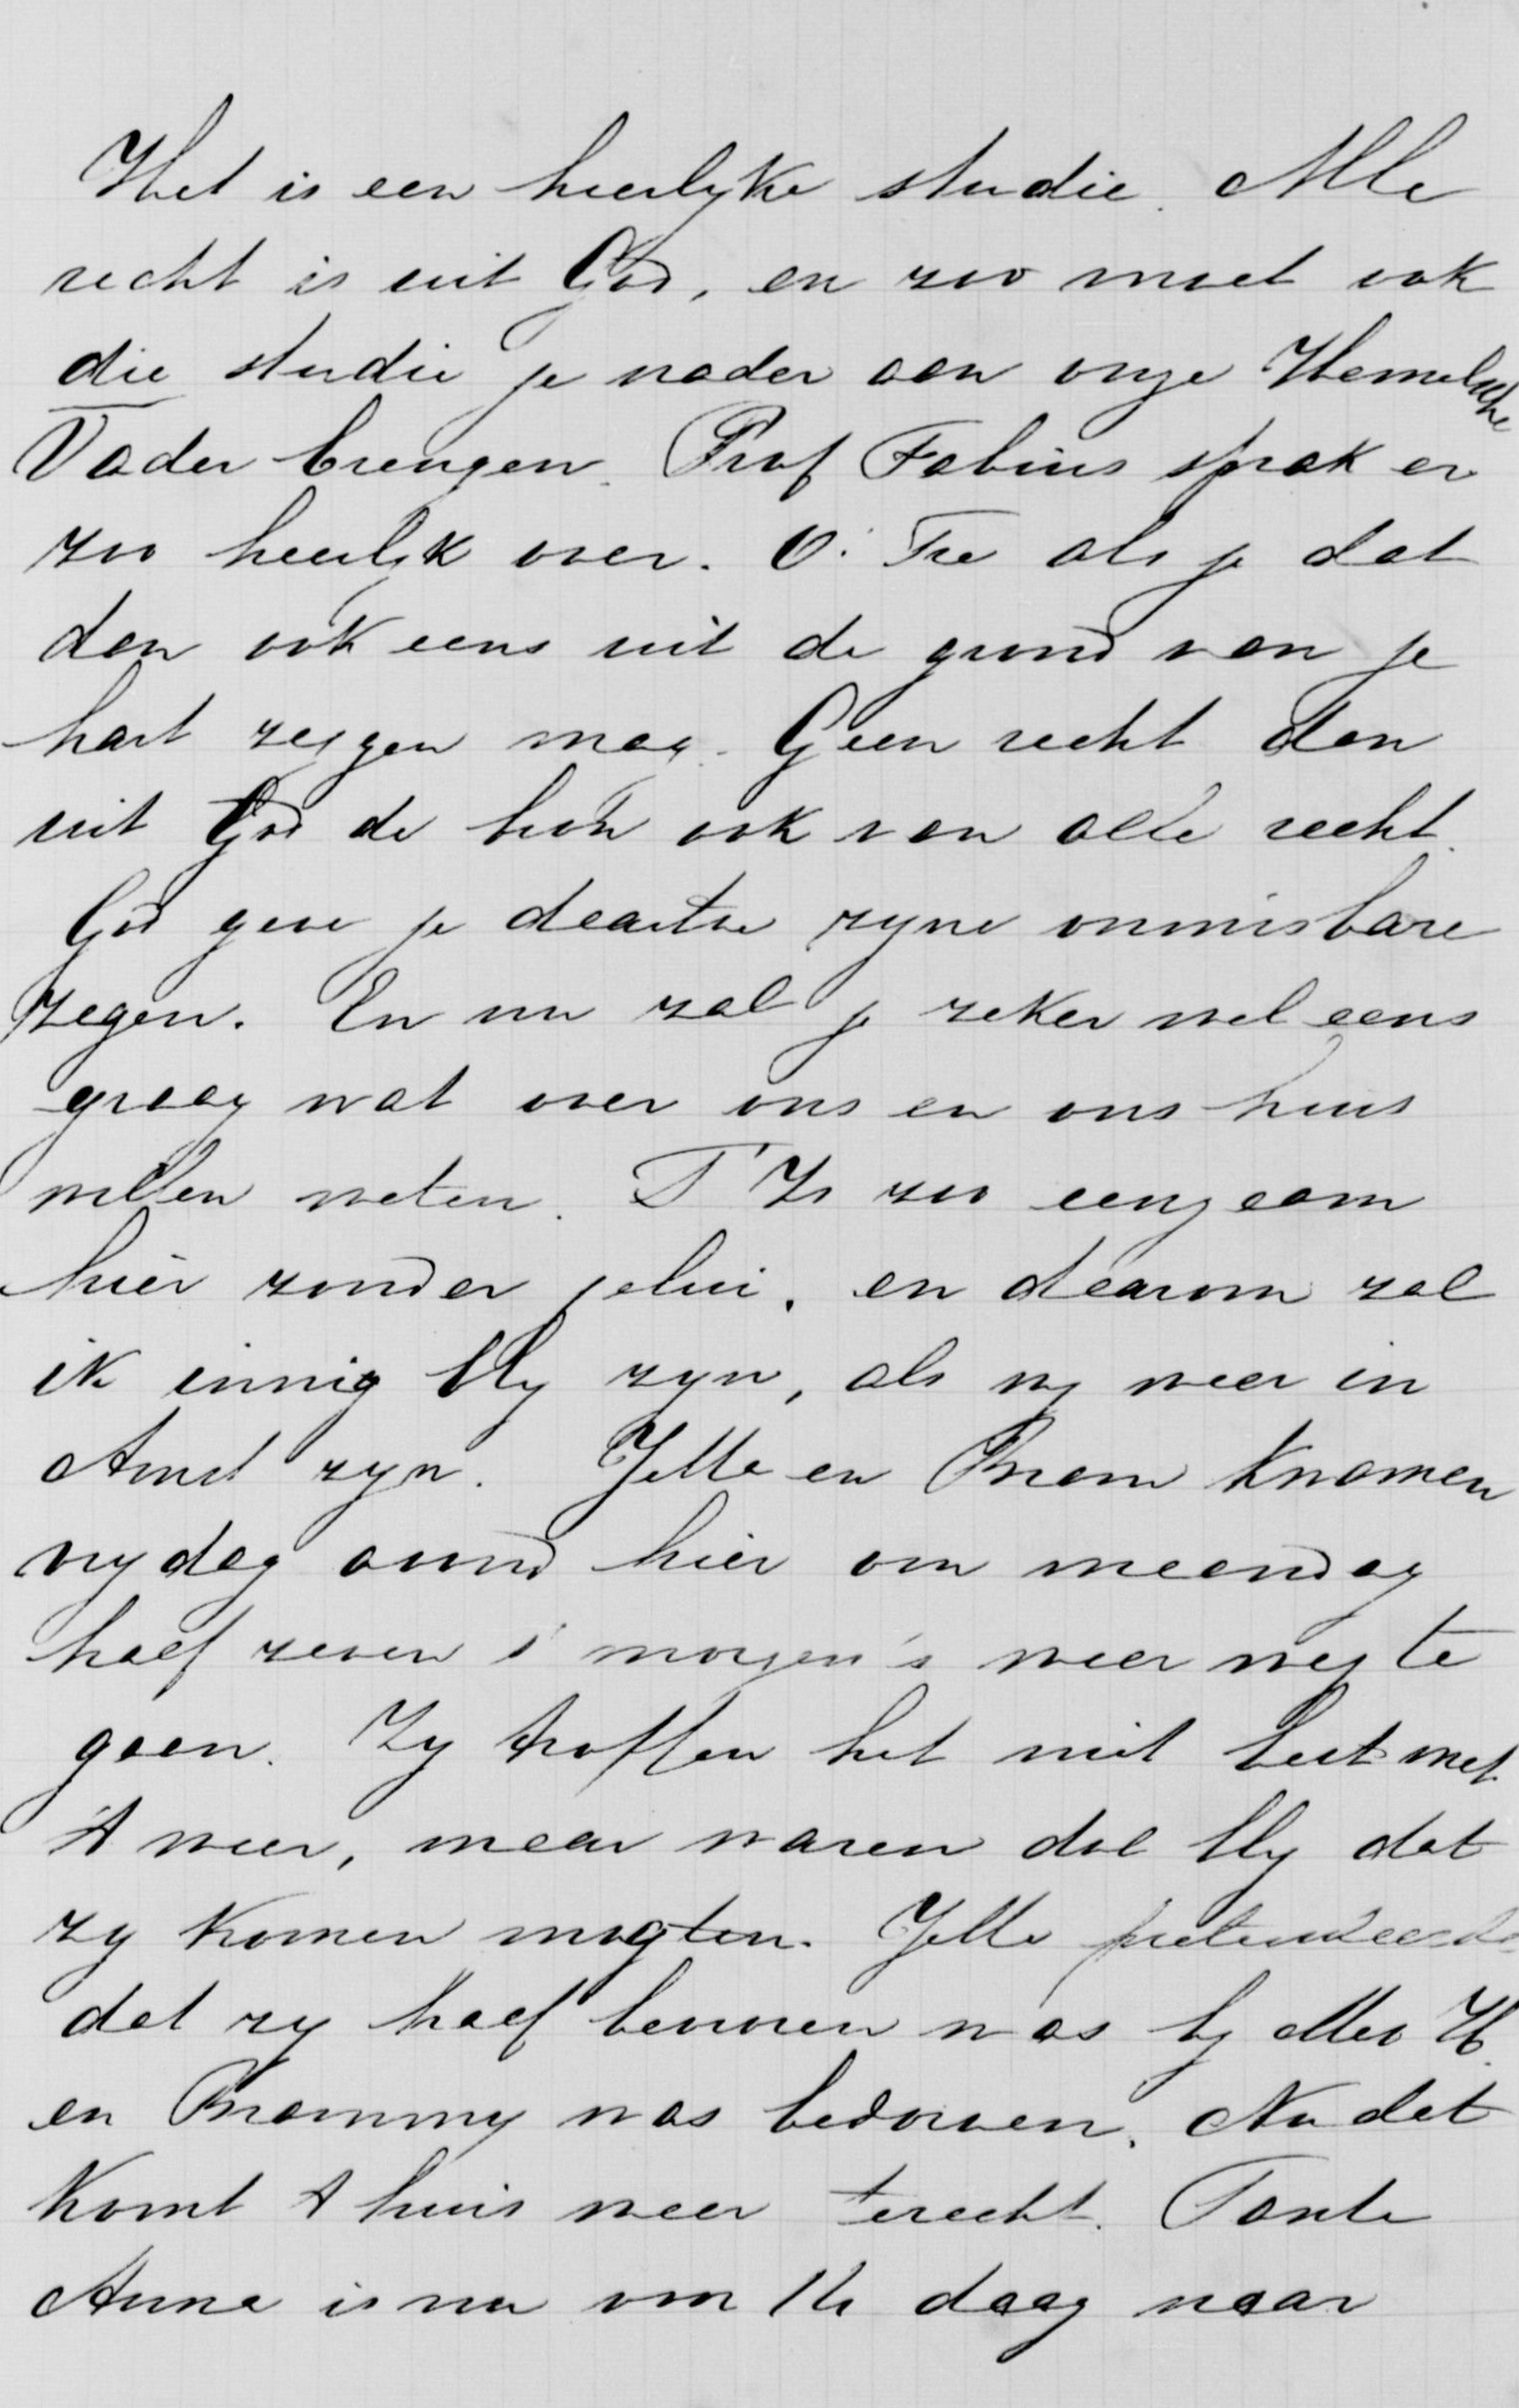 Het is een heerlyke studie. Alle
recht is uit God, en zoo moet ook
die studie je nader aan onze Hemelsche
Vader brengen. Prof Fabius sprak er
zoo heerlyk over. O. Fre als je dat
dan ook eens uit de grond van je
hart zeggen mag. Geen recht dan
uit God de bron ook van alle recht.
God geve je daartoe zyne onmisbare
zegen. En nu zal je zeker wel eens
graag wat over ons en ons huis
willen weten. T' Is zoo eenzaam
hier zonder jelui, en daarom zal
ik innig bly zyn, als wy weer in
Amst zyn. Jette en Bram kwamen
vrydag avond hier om maandag
half zeven s' morgen's weer weg te
gaan. Zy troffen het niet best met
't weer, maar waren dol bly dat
zy komen mogten. Jette pretendeerde
dat zy half bevroren was by Mev H.
en Brammy was bedorven. Nu dat
komt t huis weer terecht. Tante
Anna is nu voor 14 daag naar